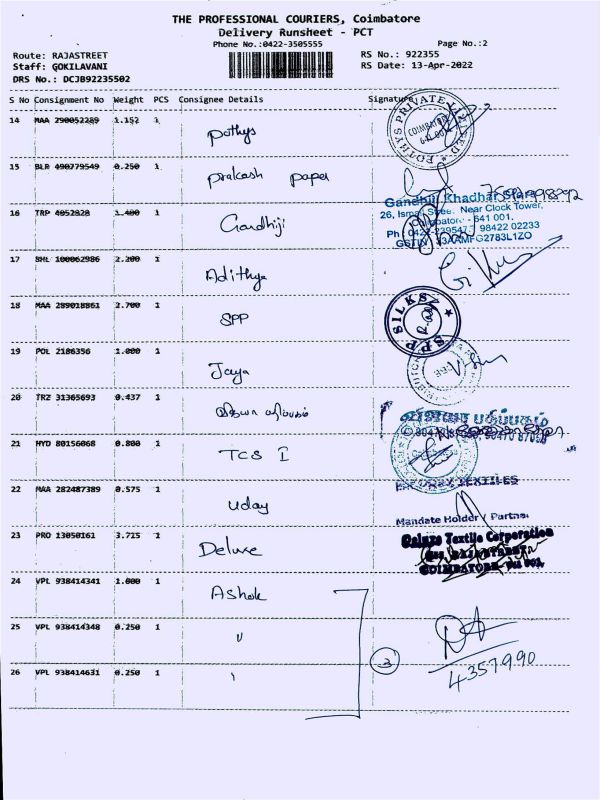 THE PROFESSIONAL COURIERS, Coimbatore
Delivery Runsheet - PCT
Phone No.:0422-3505555
Page No.:2
Route: RAJASTREET
RS No.: 922355
Staff: GOKILAVANI
RS Date: 13-Apr-2022
DRS No.: DCJB92235502
S No Consignment No Weight PCS Consignee Details Signature
14 MAA 290052289 1.152 1 pothys
COIMBATORE
15 BLR 490779549 0.250 1 prakash paper
Gandhiji Khadhar Store
26, Ismail Street, Near Clock Tower,
16 TRP 4052828 1.400 1 Gandhiji
Coimbatore - 641 001.
98422 02233
GSTIN 33AAMFG2783L1ZO
17 BHL 100062986 2.200 1 Adithya
18 MAA 289018861 2.700 1 SPP
SPP SILKS
19 POL 2186356 1.000 1 Jaya
20 TRZ 31365693 0.437 1 விஜயா பதிப்பகம்
விஜயா பதிப்பகம்
21 HYD 80156068 0.800 1 TCS I
TEXTILES
22 MAA 282487389 0.575 1 Uday
Mandate Holder / Partner
23 PRO 13050161 3.715 1 Deluxe
Deluxe Textile Corporation
COIMBATORE - 641 001.
24 VPL 938414341 1.000 1 Ashok
25 VPL 938414348 0.250 1 "
3
4357990
26 VPL 938414631 0.250 1 '